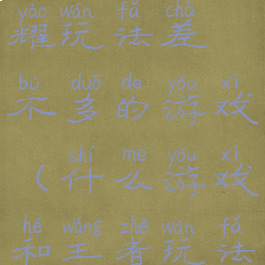 yào wán fǎ chà
耀玩法差
bù duō de yóu xì
不多的游戏
shí me yóu xì
（什么游戏
hé wáng zhě wán fǎ
和王者玩法